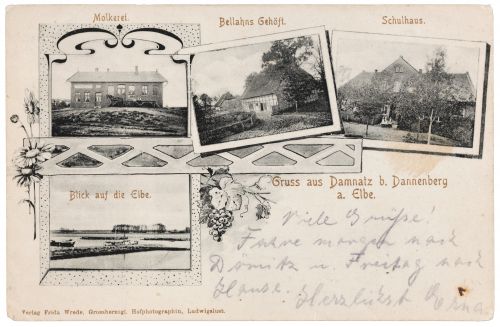 Molkerei.
Bellahns Gehöft.
Schulhaus.
Blick auf die Elbe.
Gruss aus Damnatz b. Dannenberg
a. Elbe.
Viele Grüße!
Fahre morgen nach
Dömitz u. Freitag nach
Hause. Herzlichst Erna
Verlag Frida Wrede, Grossherzogl. Hofphotographin, Ludwigslust.